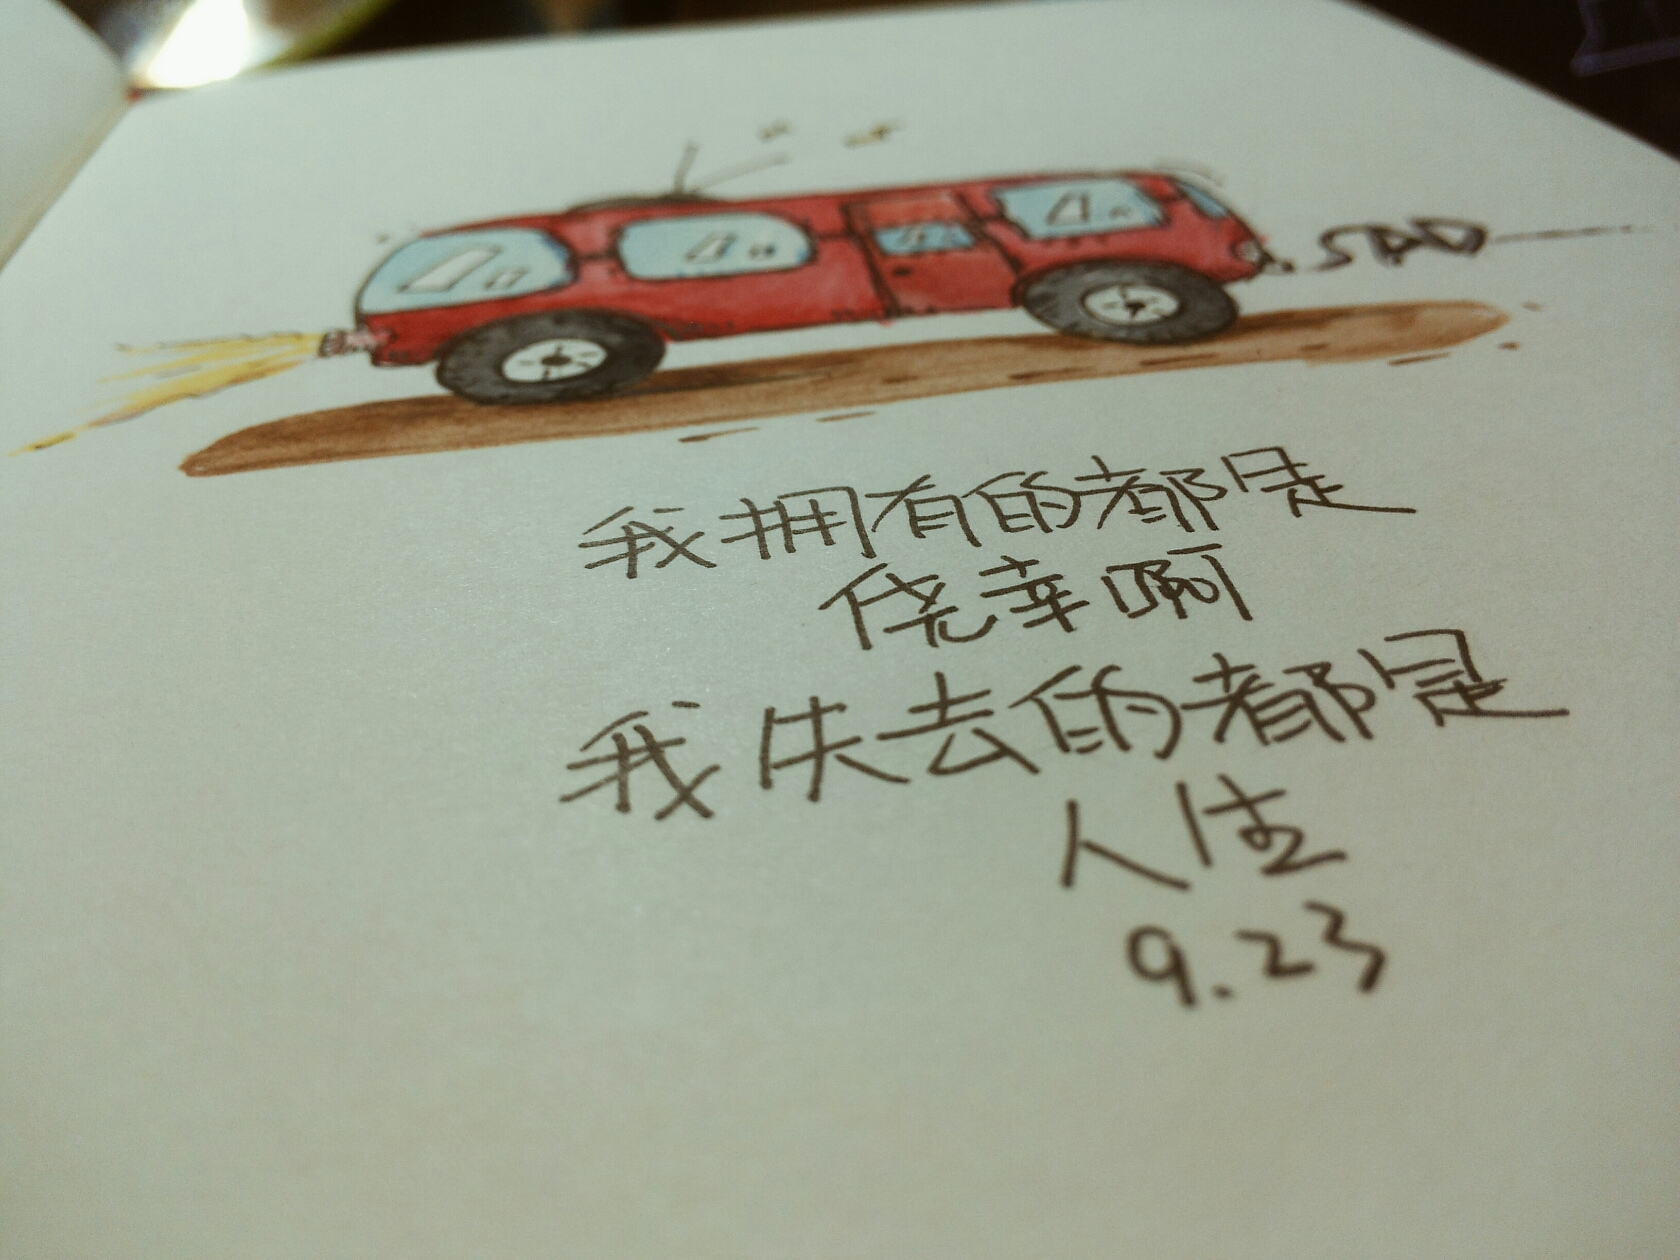 SAD
我拥有的都是
侥幸啊
我失去的都是
人生
9.23